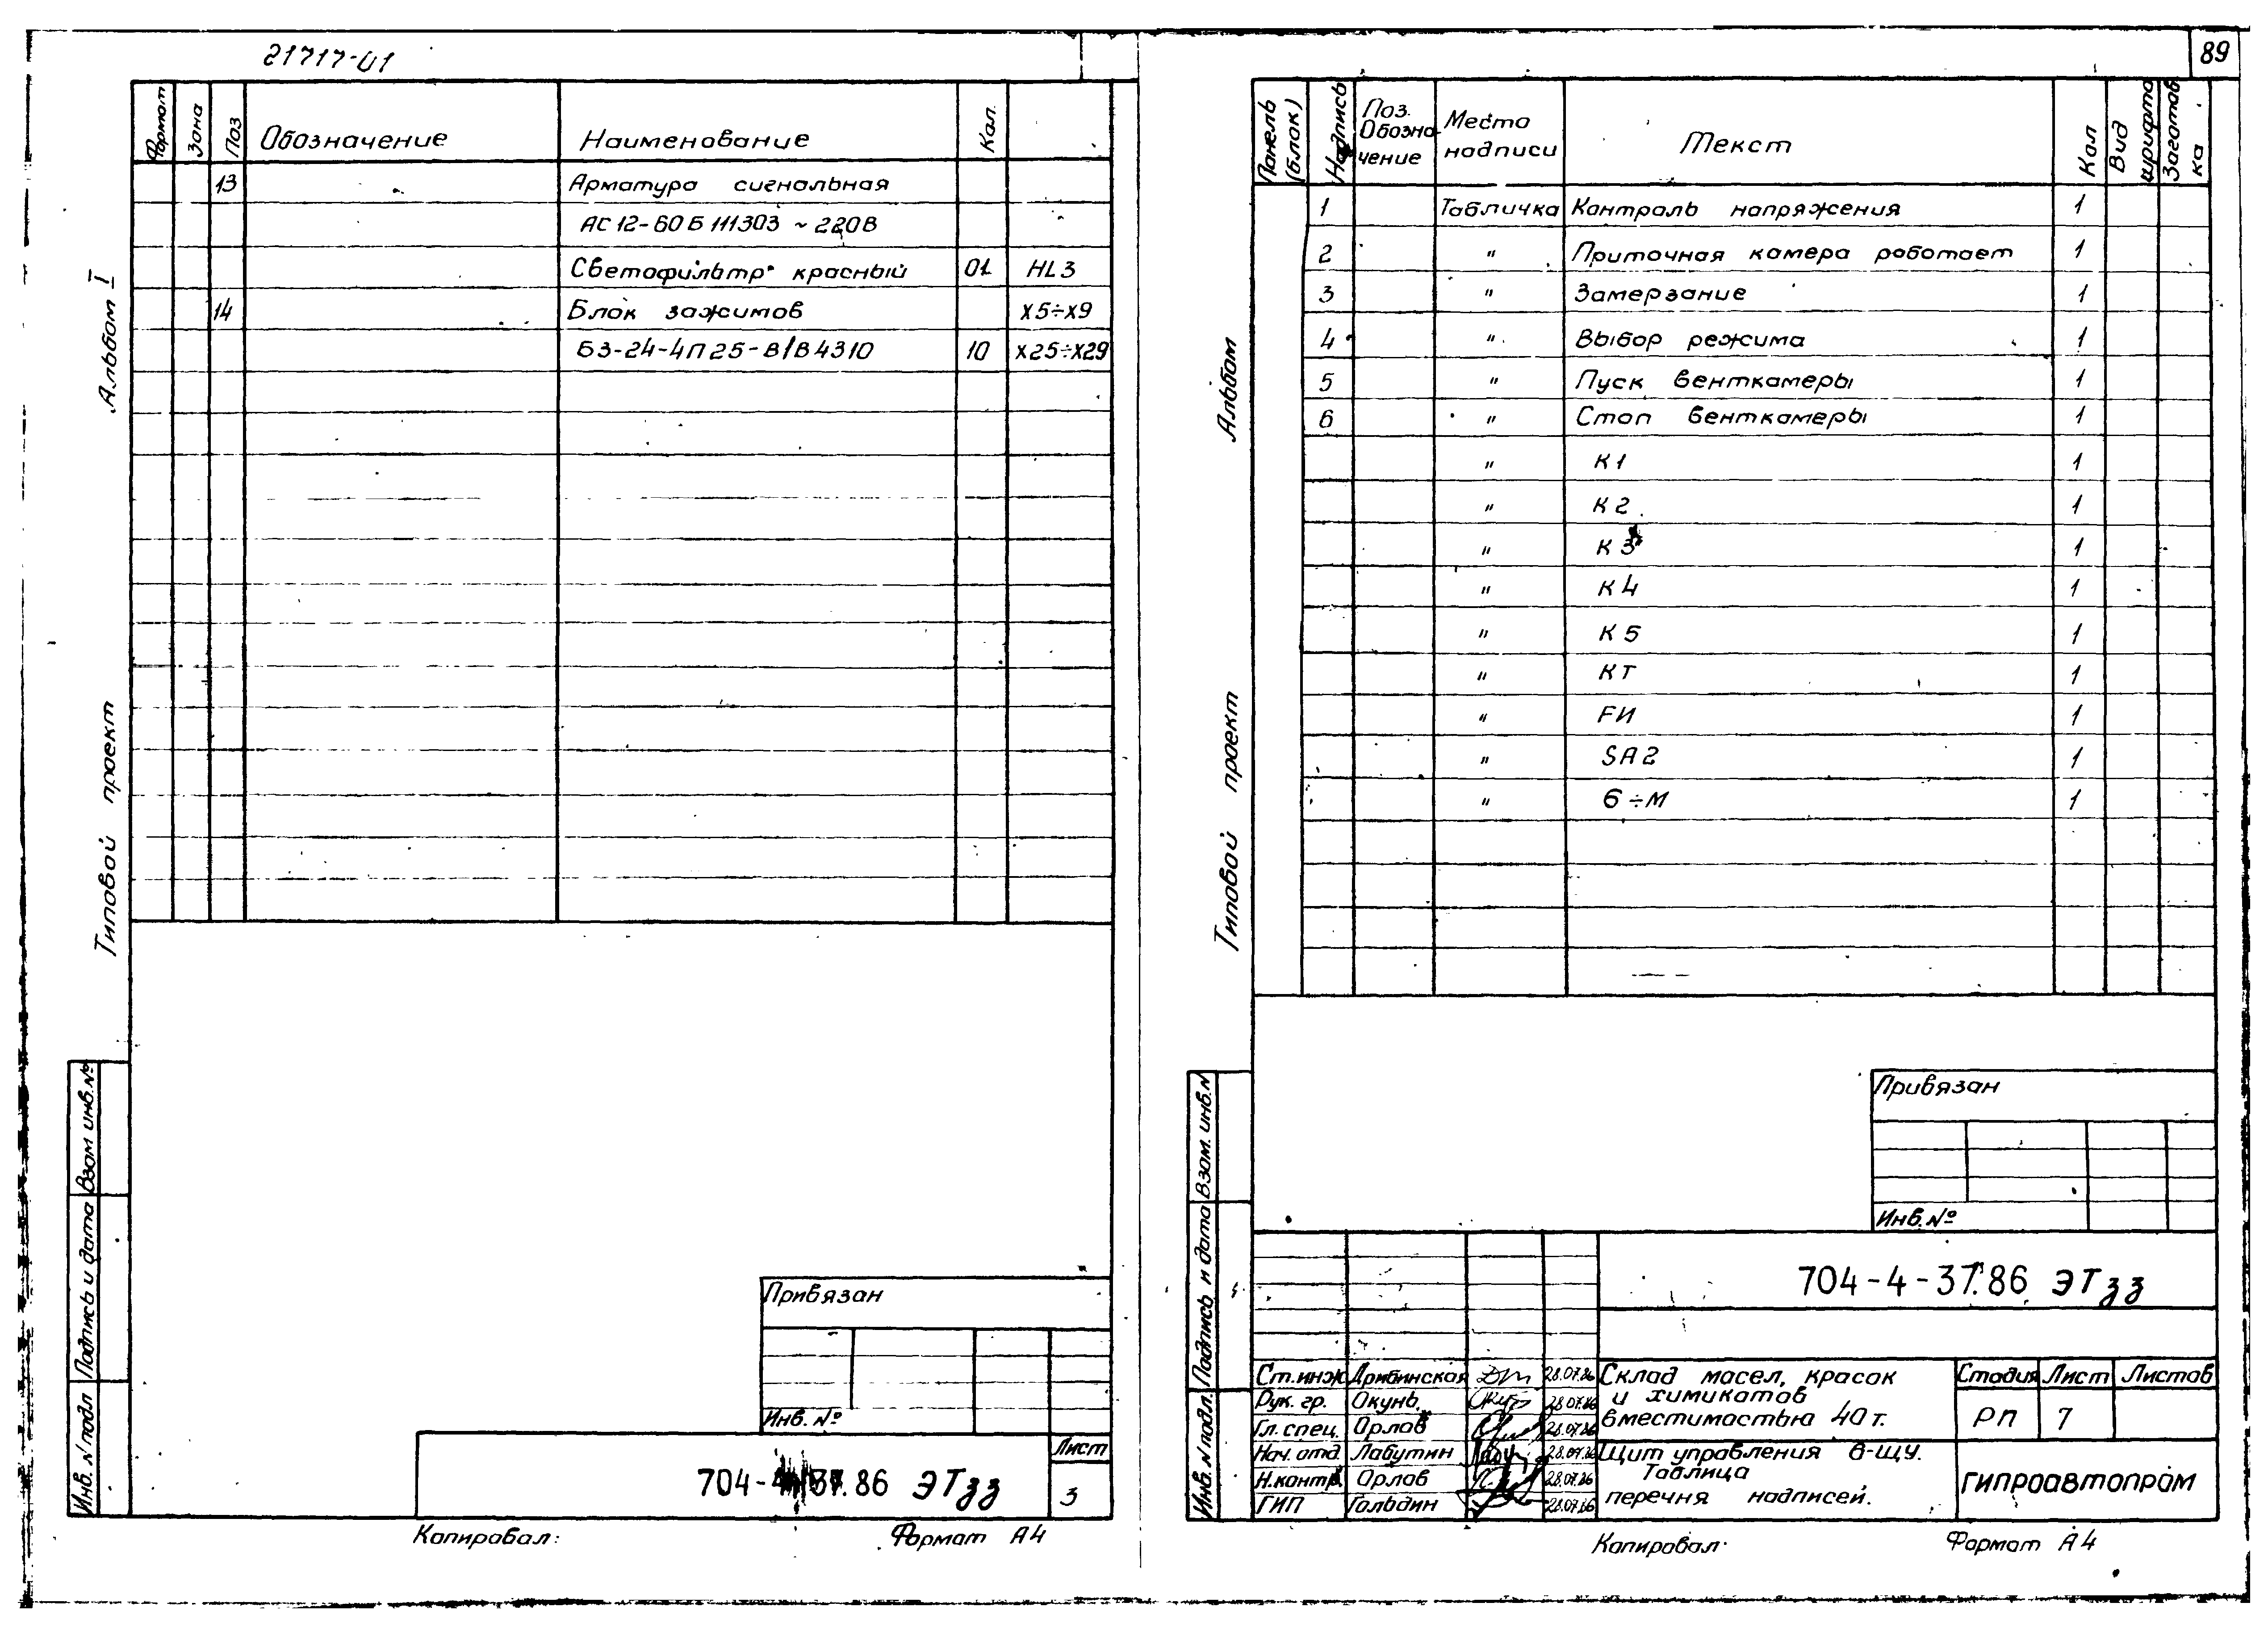 21717-01
Формат Зона Поз Обозначение Наименование Кол.
13 Арматура сигнальная
АС12-60Б111303 ~220В
Светофильтр красный 01 HL3
14 Блок зажимов Х5÷Х9
БЗ-24-4П25-В/В4310 10 Х25÷Х29
Альбом I
Типовой проект
Взам инв.№
Подпись и дата
Инв. N подл
Привязан
Инв. №
704- 37.86 ЭТзз
Лист
3
Копировал:
Формат А4
89
Панель (блок) Надпись Поз. Обозначение Место надписи Текст Кол Вид шрифта Заготовка
1 Табличка Контроль напряжения 1
2 " Приточная камера работает 1
3 " Замерзание 1
4 " Выбор режима 1
5 " Пуск венткамеры 1
6 " Стоп венткамеры 1
" К1 1
" К2 1
" К3 1
" К4 1
" К5 1
" КТ 1
" FИ 1
" SA2 1
" 6÷М 1
Альбом
Типовой проект
Взам. инв.N
Подпись и дата
Инв. N подл.
Привязан
Инв.№
704-4-37.86 ЭТзз
Ст.инж Дрибинская 28.07.86
Рук. гр. Окунь 28.07.86
Гл. спец. Орлов 28.07.86
Нач. отд. Лабутин 28.07.86
Н.контр. Орлов 28.07.86
ГИП Гольдин 28.07.86
Склад масел, красок
и химикатов
вместимостью 40 т.
Стадия Лист Листов
РП 7
Щит управления 6-ЩУ.
Таблица
перечня надписей.
ГИПРОАВТОПРОМ
Копировал.
Формат А4